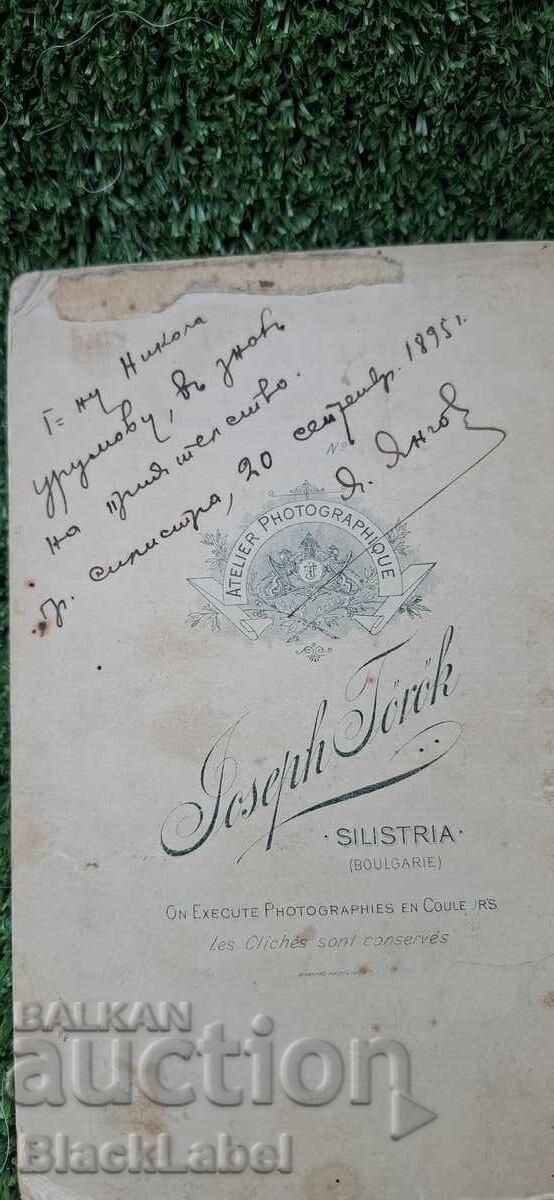 Г=ну Никола
Урумову, въ знакъ
на приятелство.
гр. Силистра, 20 септемвр. 1895 г.
Я. Янгов
No
ATELIER PHOTOGRAPHIQUE
JT
Joseph Török
· SILISTRIA ·
(BOULGARIE)
ON EXECUTE PHOTOGRAPHIES EN COULEURS
Les Clichés sont conservés
BALKAN
auction
BlackLabel